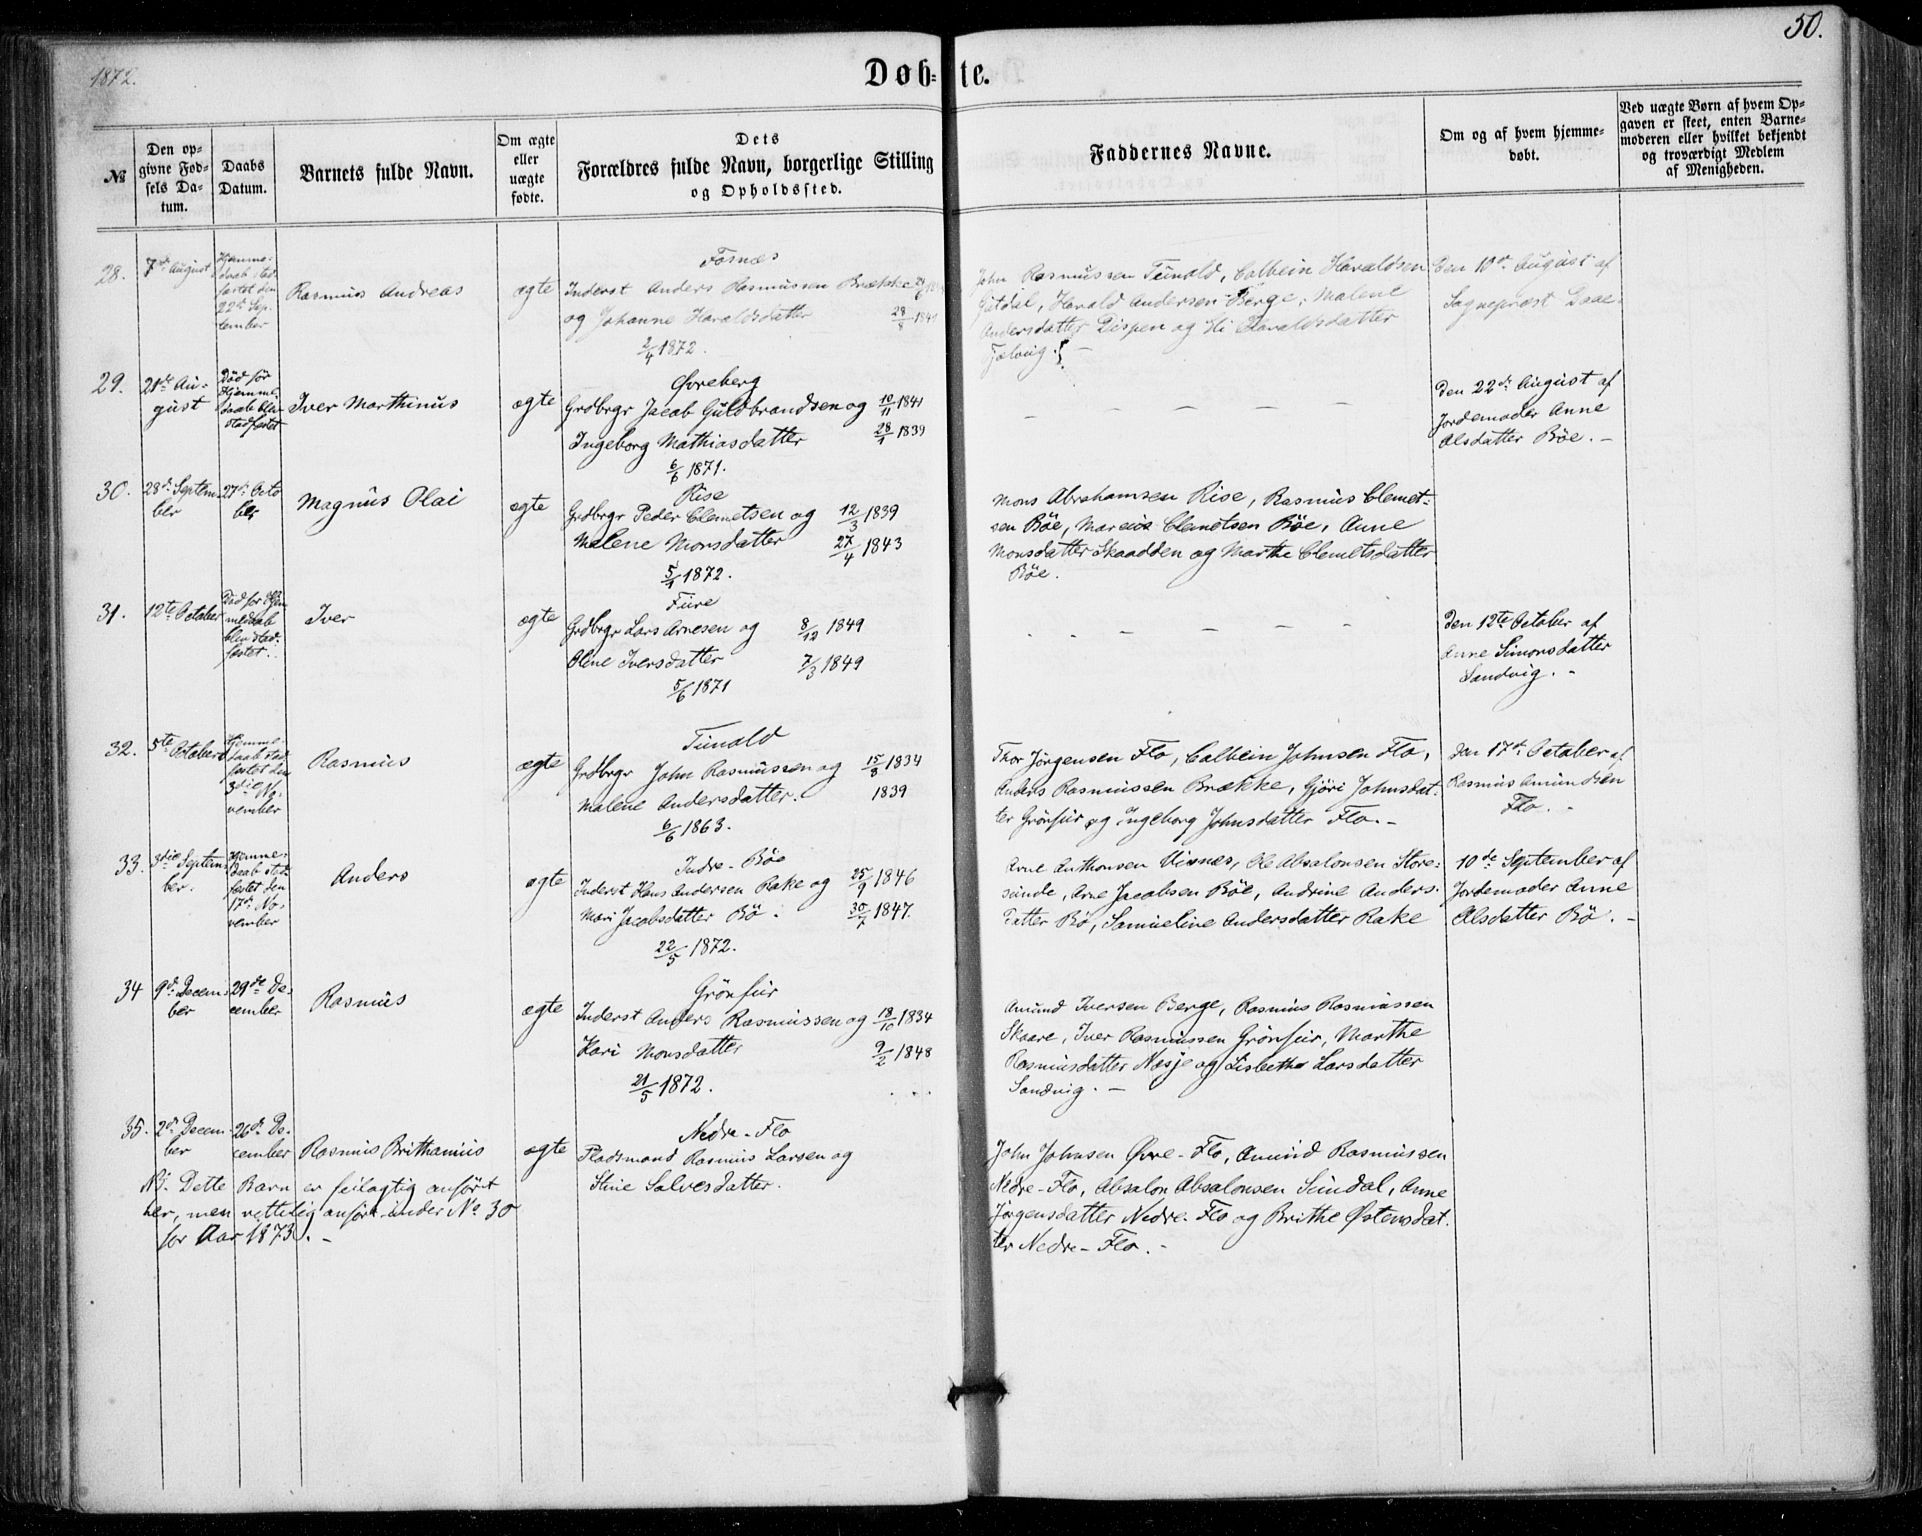 1872.
50.
Døb-te.
№
Den op-
givne Fød-
sels Da-
tum.
Daabs
Datum.
Barnets fulde Navn.
Om ægte
eller
uægte
fødte.
Dets
Forældres fulde Navn, borgerlige Stilling
og Opholdssted.
Faddernes Navne.
Om og af hvem hjemme-
døbt.
Ved uægte Børn af hvem Op-
gaven er skeet, enten Barne-
moderen eller hvilket bekjendt
og troværdigt Medlem
af Menigheden.
28.
7de August
Hjemme-
daab stad-
fæstet den
22de Sep-
tember
Rasmus Andreas
ægte
Fosnæs
Inderst Anders Rasmussen Brække
og Johanne Haraldsdatter 28/8
2/4 1872.
John Rasmussen Tunold, Colbein Haraldsen
Harald Andersen Berge, Malene
Andersdatter Dispen og Haraldsdatter
Den 10de August af
Sognepræst Daae
29.
21de Au-
gust
Død før
Hjemme-
daab blev
stadfæstet
Iver Marthinus
ægte
Øvreberg
Grdbrgr Jacob Guldbrandsen og 10/11 1841
Ingeborg Mathiasdatter 28/1 1839
6/6 1871.
– – – – – –
Den 22de August af
Jordemoder Anne
Olsdatter Böe. –
30.
28de Septem-
ber
27de Octo
ber
Magnus Olai
ægte
Rise
Grdbrgr Peder Clemetsen og 12/3 1839
Malene Monsdatter 27/4 1843
5/1 1872.
Mons Abrahamsen Rise, Rasmus Clemet-
sen Böe, Marcus Clemetsen Böe, Anne
Monsdatter Skaadden og Marthe Clemetsdatter
Böe.
31.
12te October
Död før Hjem
medaab
blev stad-
fæstet.
Iver
ægte
Fure
Grdbrgr Lars Arnesen og 8/12 1849
Oline Iversdatter 7/3 1849
5/6 1871
– – – – – –
Den 12te October af
Anne Simonsdatter
Sandvig. –
32.
5te October
Hjemme-
daab stad
fæstet den
3die No-
vember
Rasmus
ægte
Tunold
Grdbrgr John Rasmussen og 15/8 1834
Malene Andersdatter. 1839
6/6 1863.
Thor Jörgensen Flo, Colbein Johnsen Flo,
Anders Rasmussen Brække, Gjöri Johnsdat-
ter Grönfur og Ingeborg Johnsdatter Flo. –
Den 17de October af
Rasmus Amundsen
Flo. –
33.
3die Septem-
ber.
Hjemme-
daab stad-
fæstet den
17de No-
vember
Anders
ægte
Indre-Böe
Inderst Hans Andersen Rake og 25/9 1846
Mari Jacobsdatter Bö. 30/7 1847.
22/5 1872.
Arne Anthonsen Visnæs, Ole Absalonsen Store-
sunde, Arne Jacobsen Böe, Andrine Anders-
datter Bö, Samueline Andersdatter Rake
10de September af
Jordemoder Anne
Olsdatter Bö. –
34
9de Decem-
ber
29de De-
cember
Rasmus
ægte
Grönfur
Inderst Anders Rasmussen og 18/10 1834
Kari Monsdatter 9/2 1848
21/5 1872.
Amund Iversen Berge, Rasmus Rasmussen
Skaare, Iver Rasmussen Grönfur, Marthe
Rasmusdatter Nesje og Lisbethe Larsdatter
Sandvig. –
35.
2de Decem-
ber
26de De-
cember
Rasmus Brithanius
ægte
Nedre-Flo
Pladsmand Rasmus Larsen og
Stine Salvesdatter.
John Johnsen Øvre-Flo, Amund Rasmussen
Nedre-Flo, Absalon Absalonsen Sundal, Anne
Jörgensdatter Nedre-Flo og Brithe Østensdat-
ter Nedre-Flo. –
NB. Dette Barn er feilagtig anført
her, men rettelig anført under No 30
for Aar 1873. –